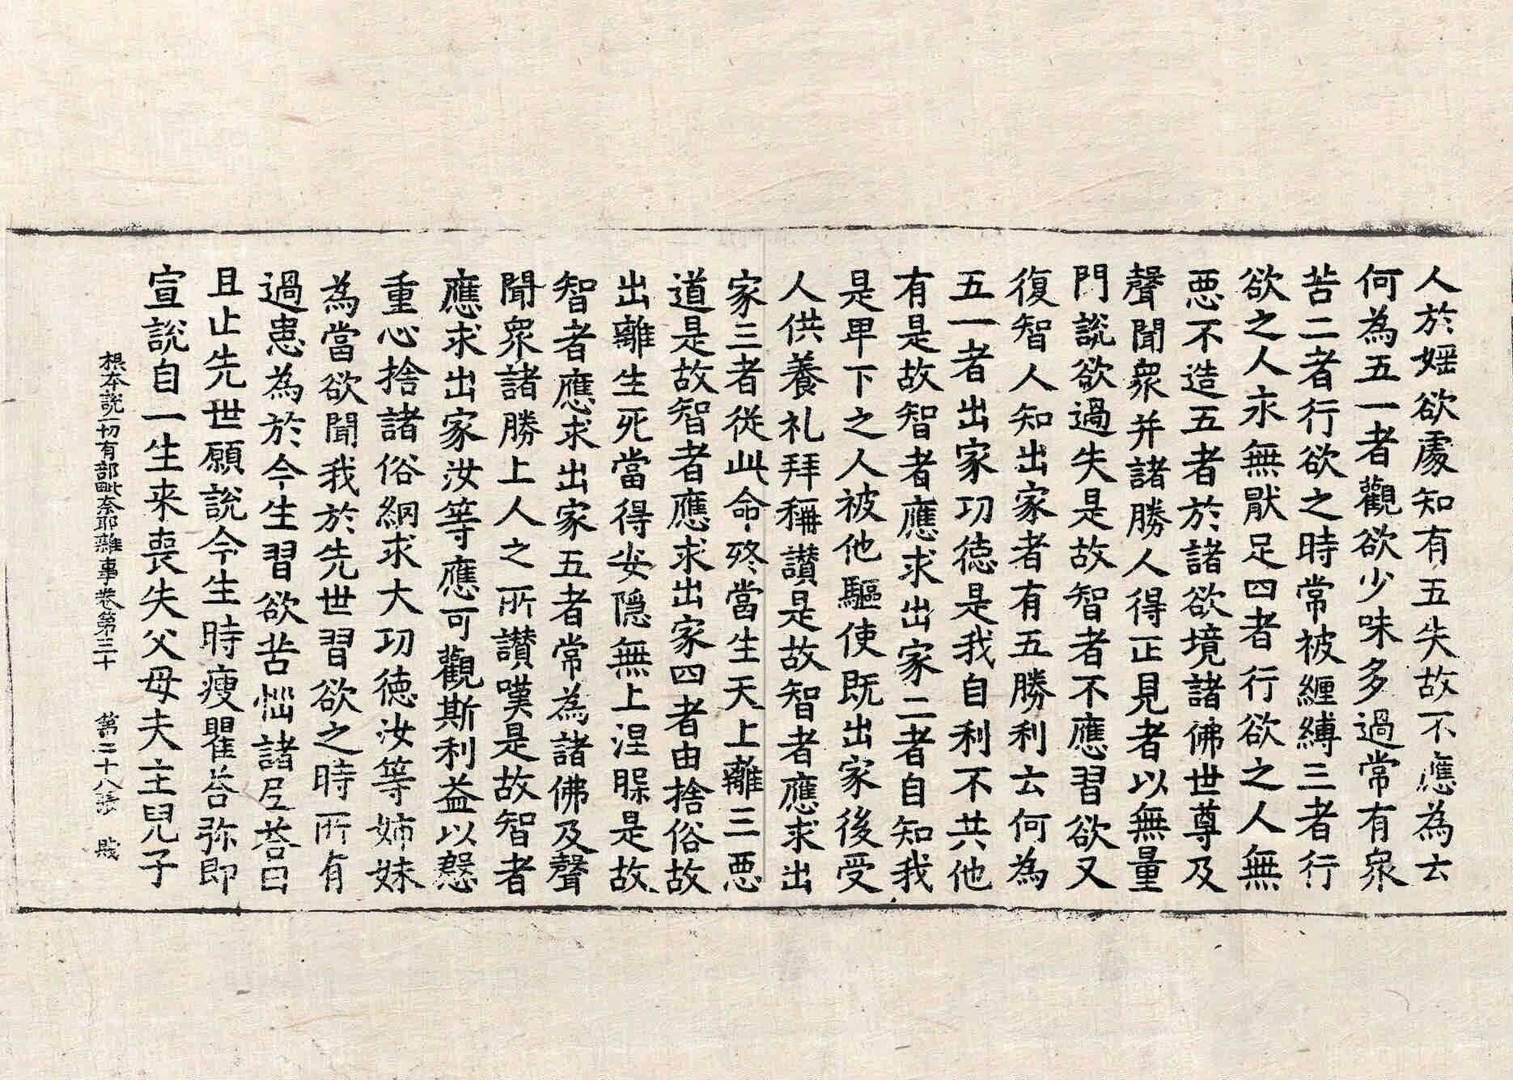 人於婬欲處知有五失故不應為云
何為五一者觀欲少味多過常有衆
苦二者行欲之時常被纏縛三者行
欲之人永無猒足四者行欲之人無
惡不造五者於諸欲境諸佛世尊及
聲聞衆并諸勝人得正見者以無量
門說欲過失是故智者不應習欲又
復智人知出家者有五勝利云何為
五一者出家功德是我自利不共他
有是故智者應求出家二者自知我
是卑下之人被他驅使既出家後受
人供養礼拜稱讃是故智者應求出
家三者從此命終當生天上離三惡
道是故智者應求出家四者由捨俗故
出離生死當得安隱無上涅槃是故
智者應求出家五者常為諸佛及聲
聞衆諸勝上人之所讃嘆是故智者
應求出家汝等應可觀斯利益以慇
重心捨諸俗網求大功德汝等姉妹
為當欲聞我於先世習欲之時所有
過患為於今生習欲苦惱諸尼荅曰
且止先世願說今生時瘦瞿荅弥即
宣說自一生来喪失父母夫主兒子
根本說一切有部毗奈耶雜事卷第三十 第二十八張 賤